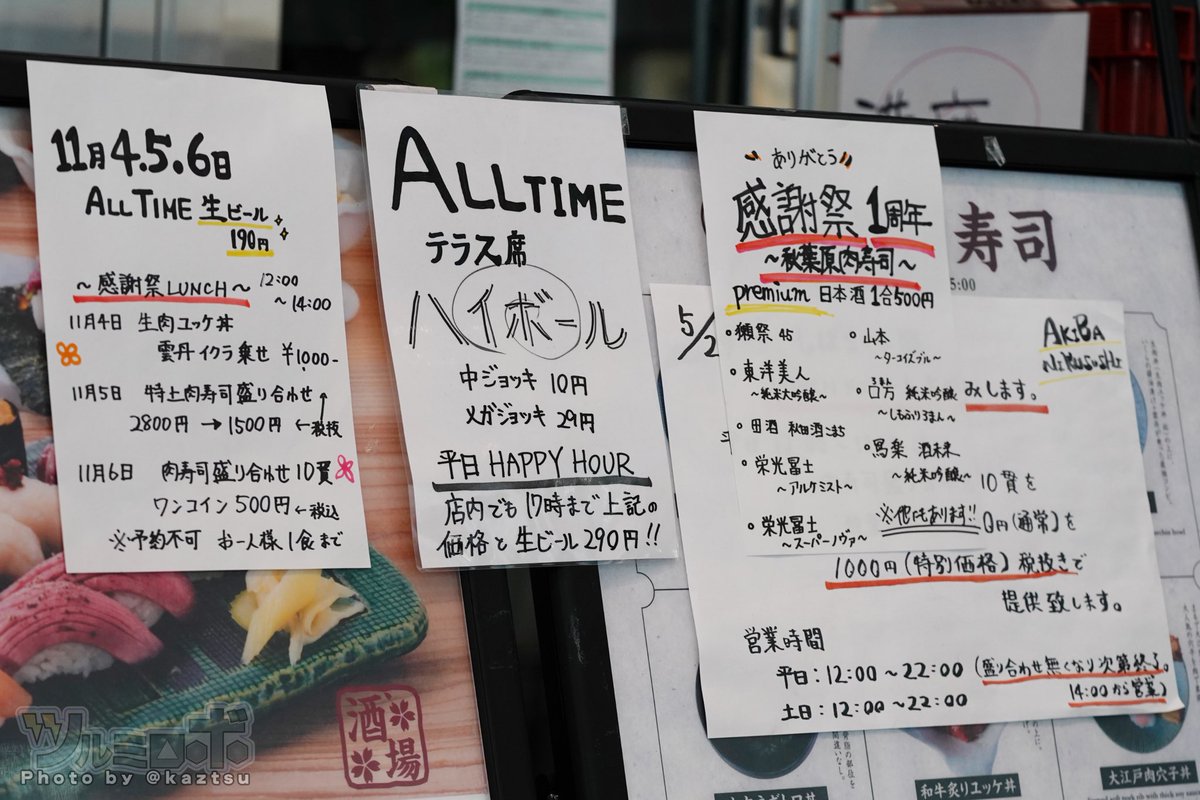 11月4.5.6日
ALL TIME 生ビール
190円
～感謝祭 LUNCH～ 12:00
～14:00
11月4日 生肉ユッケ丼
雲丹イクラ乗せ ¥1,000-
11月5日 特上肉寿司盛り合わせ
2800円 → 1500円 ←税抜
11月6日 肉寿司盛り合わせ10貫
ワンコイン500円 ←税込
※予約不可 お一人様1食まで
ALLTIME
テラス席
ハイボール
中ジョッキ 10円
メガジョッキ 29円
平日 HAPPY HOUR
店内でも17時まで上記の
価格と生ビール290円!!
ありがとう
感謝祭 1周年
～秋葉原肉寿司～
premium 日本酒1合500円
・獺祭 45
・山本
～ターコイズブルー～
・東洋美人
～純米大吟醸～
純米吟醸
～しもふりろまん～
・田酒 秋田酒こまち
・栄光冨士
～アルケミスト～
酒未来
～純米吟醸～
・栄光冨士
～スーパーノヴァ～
※他にもあります!!
5/2
AKIBA
NIKUSUSHI
みします。
10貫を
0円(通常)を
1000円(特別価格)税抜きで
提供致します。
営業時間
平日:12:00～22:00 (盛り合わせ無くなり次第終了。
14:00から営業)
土日:12:00～22:00
寿司
5:00
酒場
和牛炙りユッケ丼
大江戸肉穴子丼
ツルミロボ
Photo by @kaztsu